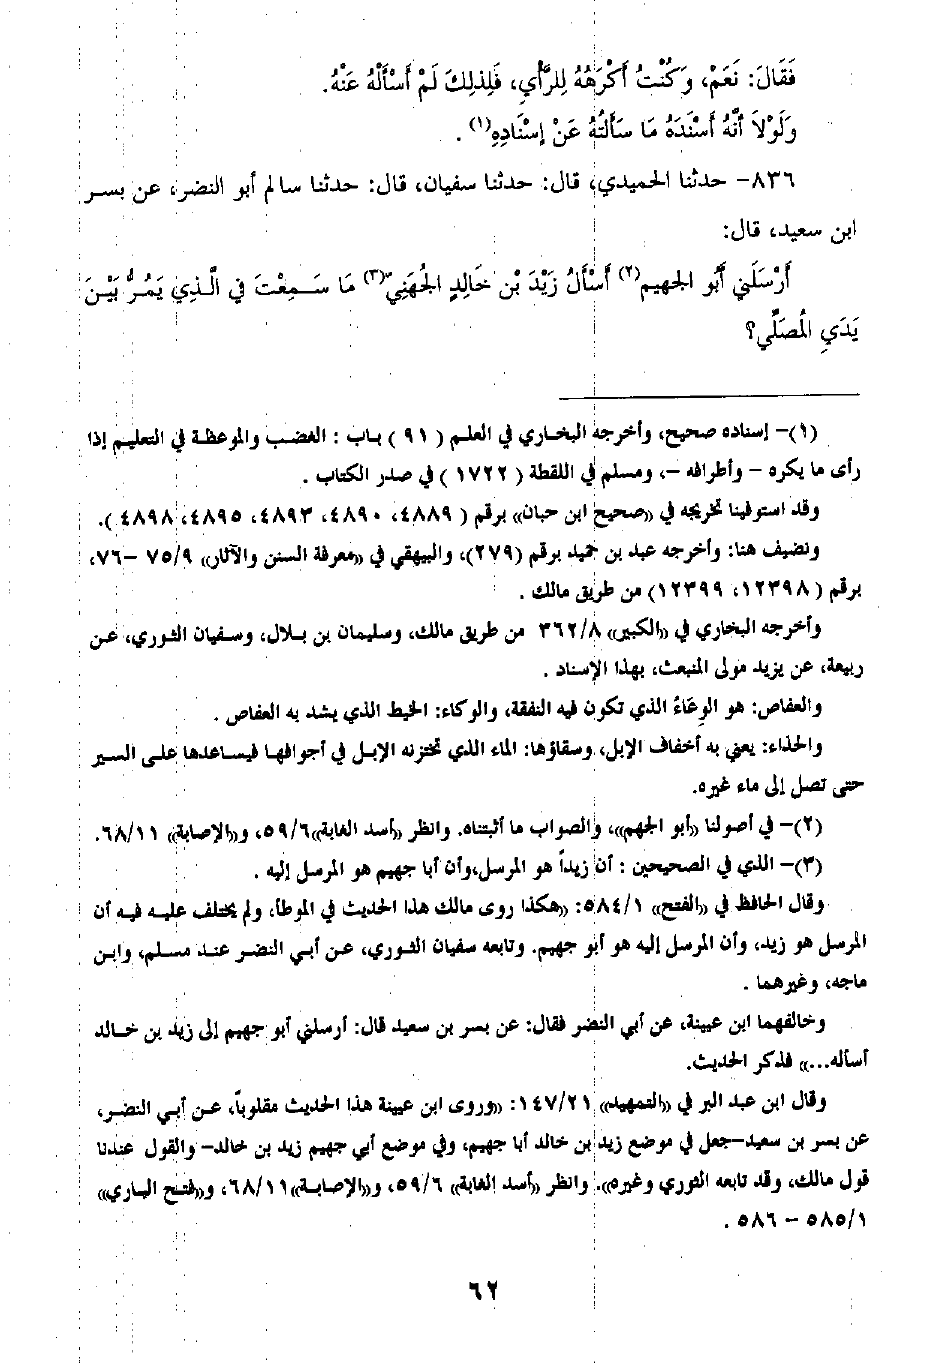 فَقَالَ: نَعَمْ، وَكُنْتُ أَكْرَهُهُ لِلرَّأْيِ، فَلِذلِكَ لَمْ أَسْأَلْهُ عَنْهُ.
وَلَوْلاَ أَنَّهُ أَسْنَدَهُ مَا سَأَلْتُهُ عَنْ إِسْنَادِهِ(١) .
٨٣٦- حدثنا الحميدي، قال: حدثنا سفيان، قال: حدثنا سالم أبو النضر، عن بسر
ابن سعيد، قال:
أَرْسَلَنِي أَبُو الجهيم(٢) أَسْأَلُ زَيْدَ بْنَ خَالِدٍ الْجُهَنِيّ(٣) مَا سَمِعْتَ فِي الَّذِي يَمُرُّ بَيْنَ
يَدَيِ الْمُصَلِّي؟
(١)- إسناده صحيح، وأخرجه البخاري في العلم ( ٩١ ) باب : الغضب والموعظة في التعليم إذا
رأى ما يكره - وأطرافه -، ومسلم في اللقطة ( ١٧٢٢ ) في صدر الكتاب .
وقد استوفينا تخريجه في «صحيح ابن حبان» برقم ( ٤٨٨٩، ٤٨٩٠، ٤٨٩٣، ٤٨٩٥، ٤٨٩٨ ).
ونضيف هنا: وأخرجه عبد بن حميد برقم (٢٧٩)، والبيهقي في «معرفة السنن والآثار» ٧٥/٩ -٧٦،
برقم ( ١٢٣٩٨، ١٢٣٩٩) من طريق مالك .
وأخرجه البخاري في «الكبير» ٣٦٢/٨ من طريق مالك، وسليمان بن بلال، وسفيان الثوري، عن
ربيعة، عن يزيد مولى المنبعث، بهذا الإسناد .
والعفاص: هو الوِعَاءُ الذي تكون فيه النفقة، والوكاء: الخيط الذي يشد به العفاص .
والحذاء: يعني به أخفاف الإبل، وسقاؤها: الماء الذي تختزنه الإبل في أجوافها فيساعدها على السير
حتى تصل إلى ماء غيره.
(٢)- في أصولنا «أبو الجهم»، والصواب ما أثبتناه. وانظر «أسد الغابة»٥٩/٦، و«الإصابة» ٦٨/١١.
(٣)- الذي في الصحيحين : أن زيداً هو المرسل،وأن أبا جهيم هو المرسل إليه .
وقال الحافظ في «الفتح» ٥٨٤/١: «هكذا روى مالك هذا الحديث في الموطأ، ولم يختلف عليه فيه أن
المرسل هو زيد، وأن المرسل إليه هو أبو جهيم. وتابعه سفيان الثوري، عن أبي النضر عند مسلم، وابن
ماجه، وغيرهما .
وخالفهما ابن عيينة، عن أبي النضر فقال: عن بسر بن سعيد قال: أرسلني أبو جهيم إلى زيد بن خالد
أسأله...» فذكر الحديث.
وقال ابن عبد البر في «التمهيد» ١٤٧/٢١: «وروى ابن عيينة هذا الحديث مقلوباً، عن أبي النضر،
عن بسر بن سعيد-جعل في موضع زيد بن خالد أبا جهيم، وفي موضع أبي جهيم زيد بن خالد- والقول عندنا
قول مالك، وقد تابعه الثوري وغيره». وانظر «أسد الغابة» ٥٩/٦، و«الإصابة»٦٨/١١، و«فتح الباري»
٥٨٥/١ - ٥٨٦ .
٦٢